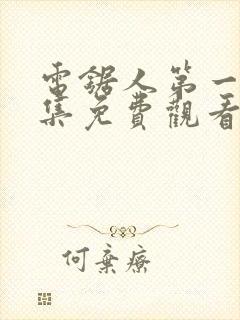 電鋸人第一
集免費觀看
何棄療